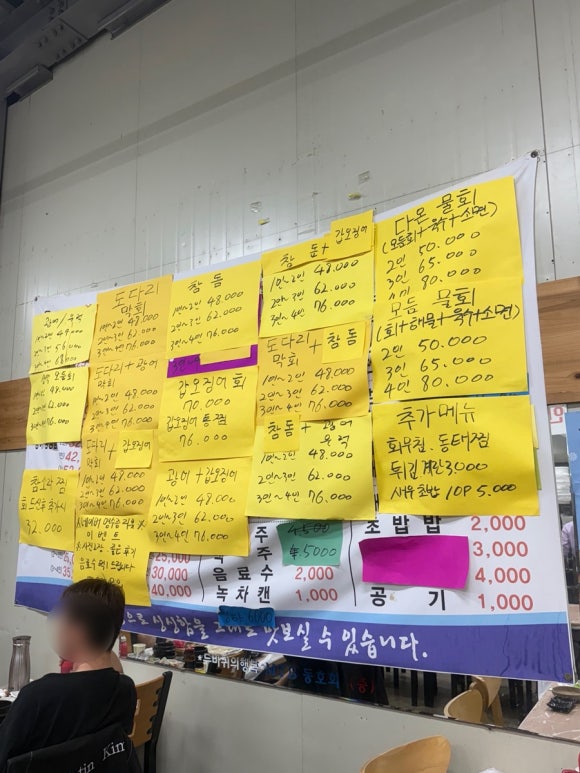 도다리
막회
1인~2인 48.000
2인~3인 62.000
3인~4인 76.000
참돔
1인~2인 48.000
2인~3인 62.000
3인~4인 76.000
참돔+
갑오징어
1인~2인 48.000
2인~3인 62.000
3인~4인 76.000
다온 물회
(모듬회+육수+소면)
2인 50.000
3인 65.000
80.000
도다리+광어
막회
1인~2인 48.000
2인~3인 62.000
3인~4인 76.000
갑오징어회
70.000
갑오징어 통찜
76.000
도다리+참돔
막회
1인~2인 48.000
2인~3인 62.000
3인~4인 76.000
모듬 물회
(회+해물+육수+소면)
2인 50.000
3인 65.000
4인 80.000
도다리+갑오징어
막회
1인~2인 48.000
2인~3인 62.000
3인~4인 76.000
광어+갑오징어
1인~2인 48.000
2인~3인 62.000
3인~4인 76.000
참돔+광어
우럭
1인~2인 48.000
2인~3인 62.000
3인~4인 76.000
추가메뉴
회무침. 동태찜
튀김 계란 3.000
새우초밥 10P 5.000
32.000
이벤트
30,000
40,000
주
4500
주 5000
음료수 2,000
녹차캔 1,000
6000
초밥밥 2,000
3,000
4,000
공기 1,000
맛보실 수 있습니다.